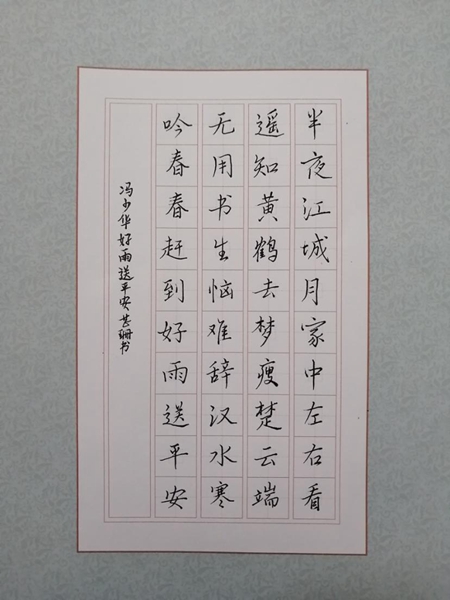 半夜江城月家中左右看
遥知黄鹤去梦瘦楚云端
无用书生恼难辞汉水寒
吟春春赶到好雨送平安
冯少华好雨送平安芸珊书